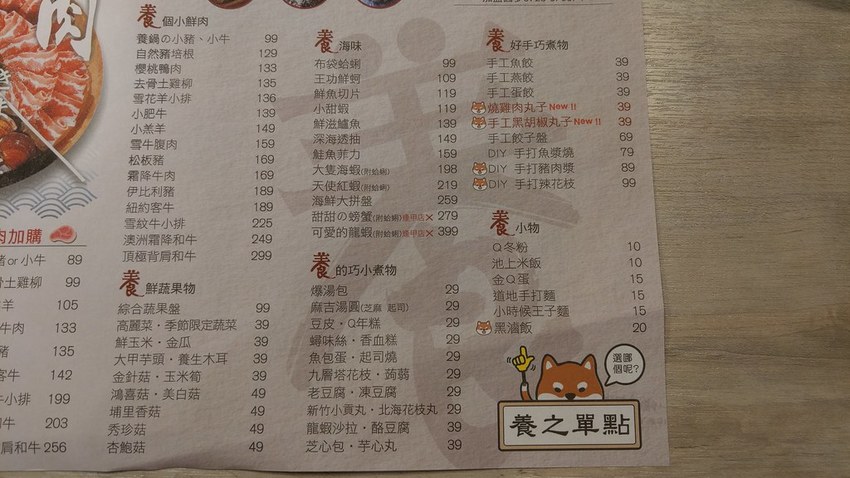 肉
養 個小鮮肉
養鍋の小豬、小牛 99
自然豬培根 129
櫻桃鴨肉 133
去骨土雞柳 135
雪花羊小排 136
小肥牛 139
小羔羊 149
雪牛腹肉 159
松板豬 169
霜降牛肉 169
伊比利豬 189
紐約客牛 189
雪紋牛小排 225
澳洲霜降和牛 249
頂極翼肩和牛 299
養 鮮蔬果物
綜合蔬果盤 99
高麗菜・季節限定蔬菜 39
鮮玉米・金瓜 39
大甲芋頭・養生木耳 39
金針菇・玉米筍 39
鴻喜菇・美白菇 49
埔里香菇 49
秀珍菇 49
杏鮑菇 49
養 海味
布袋蛤蜊 99
王功鮮蚵 109
鮮魚切片 119
小甜蝦 119
鮮滋鱸魚 139
深海透抽 149
鮭魚菲力 159
大隻海蝦(附蛤蜊) 198
天使紅蝦(附蛤蜊) 219
海鮮大拼盤 259
甜甜の螃蟹(附蛤蜊) 279
可愛的龍蝦(附蛤蜊) 399
養 的巧小煮物
爆湯包 29
麻吉湯圓(芝麻 起司) 29
豆皮・Q年糕 29
蟳味絲・香血糕 29
魚包蛋・起司燒 29
九層塔花枝・蒟蒻 29
老豆腐・凍豆腐 29
新竹小貢丸・北海花枝丸 29
龍蝦沙拉・酪豆腐 39
芝心包・芋心丸 39
養 好手巧煮物
手工魚餃 39
手工燕餃 39
手工蛋餃 39
燒雞肉丸子New!! 39
手工黑胡椒丸子New!! 39
手工餃子盤 69
DIY 手打魚漿燒 79
DIY 手打豬肉漿 89
DIY 手打辣花枝 99
養 小物
Q冬粉 10
池上米飯 10
金Q蛋 15
道地手打麵 15
小時候王子麵 15
黑滷飯 20
選哪個呢?
養之單點
肉加購
豬or小牛 89
骨土雞柳 99
羊 105
牛肉 133
豬 135
客牛 142
牛小排 199
和牛 203
肩和牛 256